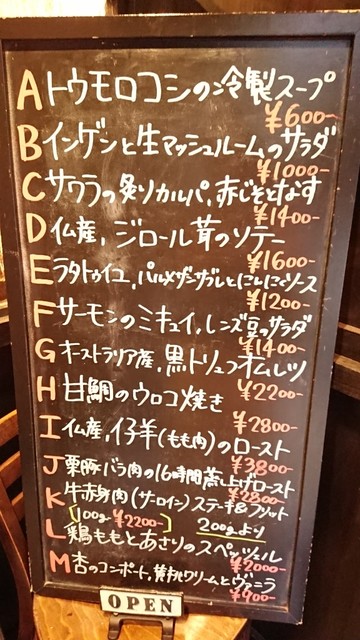 A トウモロコシの冷製スープ
¥600-
B インゲンと生マッシュルームのサラダ
¥1000-
C サワラの炙りカルパ、赤じそとなす
¥1400-
D 仏産、ジロール茸のソテー
¥1600-
E ラタトゥイユ、パルメザンサブレとにんにくソース
¥1200-
F サーモンのミキュイ、レンズ豆のサラダ
¥1400-
G オーストラリア産、黒トリュフオムレツ
¥2200-
H 甘鯛のウロコ焼き
¥2800-
I 仏産、仔羊(もも肉)のロースト
¥3800-
J 栗豚バラ肉の16時間蒸し上げロースト
¥2800-
K 牛赤身肉(サーロイン)ステーキ&フリット
100g ¥2200- 200gより
L 鶏ももとあさりのスペッツェル
¥2000-
M 杏のコンポート、黄桃クリームとヴァニラ
¥900-
OPEN